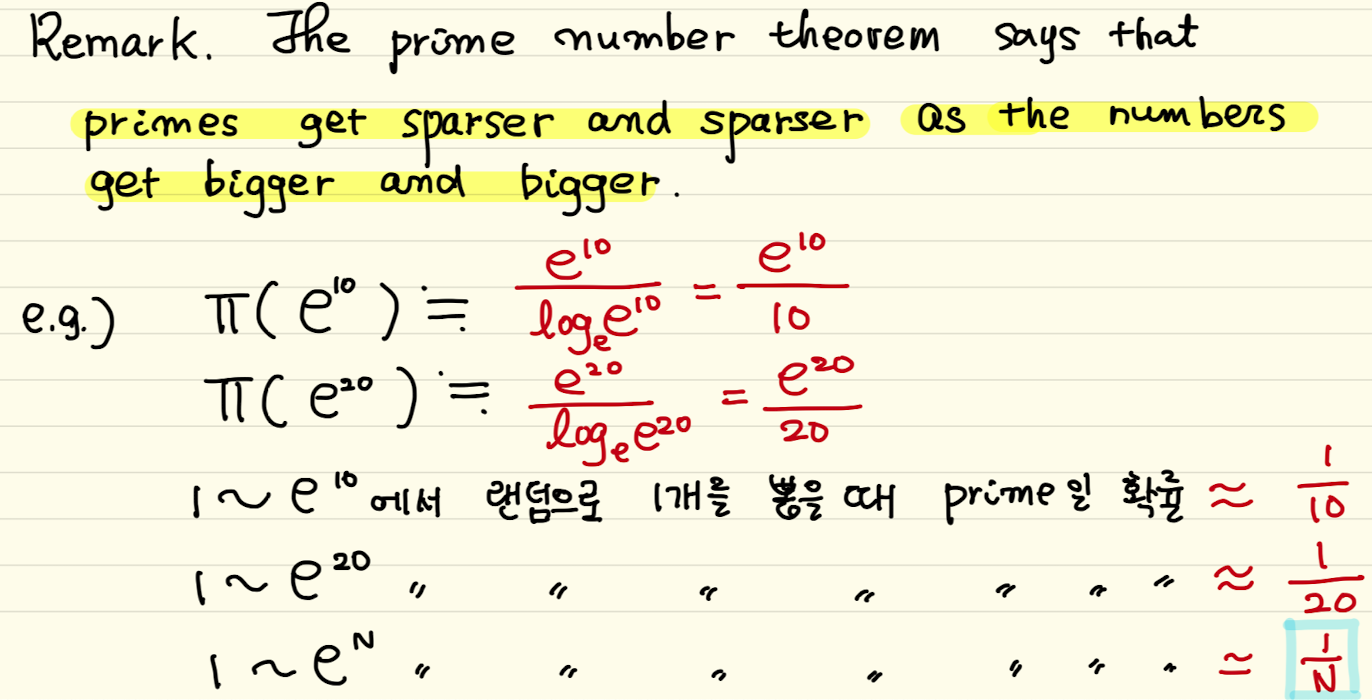 Remark. The prime number theorem says that
primes get sparser and sparser as the numbers
get bigger and bigger.
e.g.) π(e^10) ≒ e^10/log_e e^10 = e^10/10
π(e^20) ≒ e^20/log_e e^20 = e^20/20
1 ~ e^10 에서 랜덤으로 1개를 뽑을 때 prime일 확률 ≈ 1/10
1 ~ e^20 〃 〃 〃 〃 〃 〃 〃 ≈ 1/20
1 ~ e^N 〃 〃 〃 〃 〃 〃 〃 ≈ 1/N